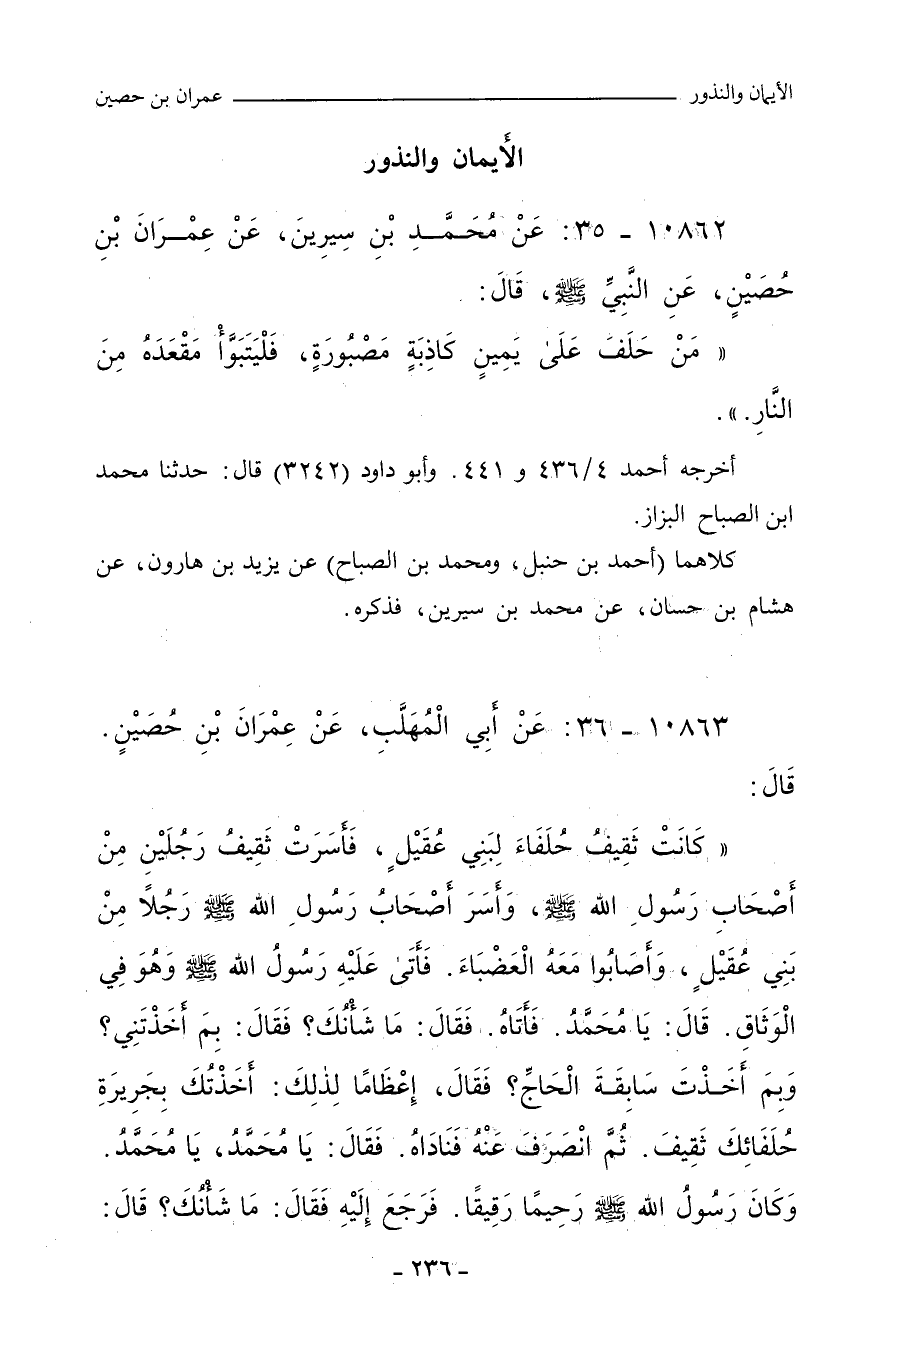 الأيمان والنذور ــــــــــــــــــــ عمران بن حصين
الأَيمان والنذور
١٠٨٦٢ - ٣٥: عَنْ مُحَمَّدِ بْنِ سِيرِينَ، عَنْ عِمْرَانَ بْنِ
حُصَيْنٍ، عَنِ النَّبِيِّ ﷺ، قَالَ:
« مَنْ حَلَفَ عَلَىٰ يَمِينٍ كَاذِبَةٍ مَصْبُورَةٍ، فَلْيَتَبَوَّأْ مَقْعَدَهُ مِنَ
النَّارِ. ».
أخرجه أحمد ٤٣٦/٤ و ٤٤١. وأبو داود (٣٢٤٢) قال: حدثنا محمد
ابن الصباح البزاز.
كلاهما (أحمد بن حنبل، ومحمد بن الصباح) عن يزيد بن هارون، عن
هشام بن حسان، عن محمد بن سيرين، فذكره.
١٠٨٦٣ - ٣٦: عَنْ أَبِي الْمُهَلَّبِ، عَنْ عِمْرَانَ بْنِ حُصَيْنٍ.
قَالَ:
« كَانَتْ ثَقِيفُ حُلَفَاءَ لِبَنِي عُقَيْلٍ، فَأَسَرَتْ ثَقِيفُ رَجُلَيْنِ مِنْ
أَصْحَابِ رَسُولِ الله ﷺ، وَأَسَرَ أَصْحَابُ رَسُولِ الله ﷺ رَجُلاً مِنْ
بَنِي عُقَيْلٍ، وَأَصَابُوا مَعَهُ الْعَضْبَاءَ. فَأَتَىٰ عَلَيْهِ رَسُولُ الله ﷺ وَهُوَ فِي
الْوَثَاقِ. قَالَ: يَا مُحَمَّدُ. فَأَتَاهُ. فَقَالَ: مَا شَأْنُكَ؟ فَقَالَ: بِمَ أَخَذْتَنِي؟
وَبِمَ أَخَذْتَ سَابِقَةَ الْحَاجِّ؟ فَقَالَ، إِعْظَامًا لِذٰلِكَ: أَخَذْتُكَ بِجَرِيرَةِ
حُلَفَائِكَ ثَقِيفَ. ثُمَّ انْصَرَفَ عَنْهُ فَنَادَاهُ. فَقَالَ: يَا مُحَمَّدُ، يَا مُحَمَّدُ.
وَكَانَ رَسُولُ الله ﷺ رَحِيمًا رَقِيقًا. فَرَجَعَ إِلَيْهِ فَقَالَ: مَا شَأْنُكَ؟ قَالَ:
- ٢٣٦ -